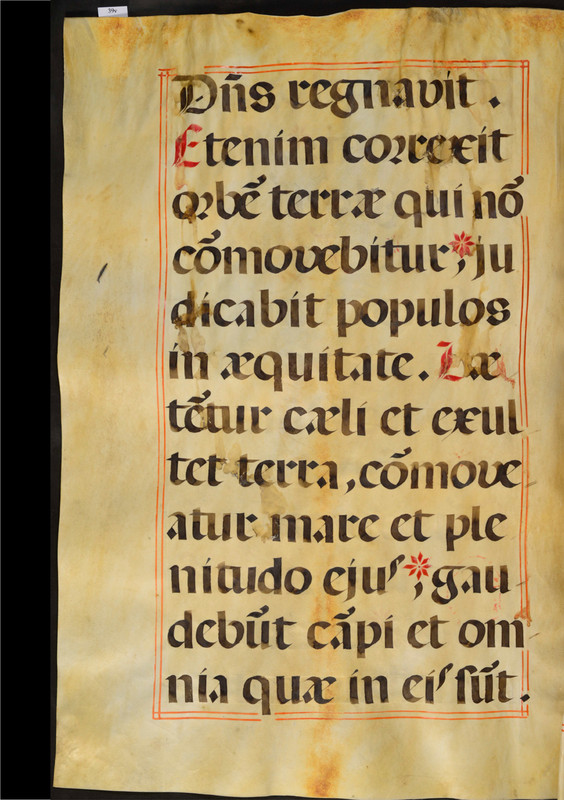 39v
Dñs regnavit.
Etenim correxit
orbẽ terræ qui nõ
cõmovebitur,* ju
dicabit populos
in æquitate. Læ
tẽtur cæli et exul
tet terra, cõmove
atur mare et ple
nitudo ejus,* gau
debũt cãpi et om
nia quæ in eis sũt.